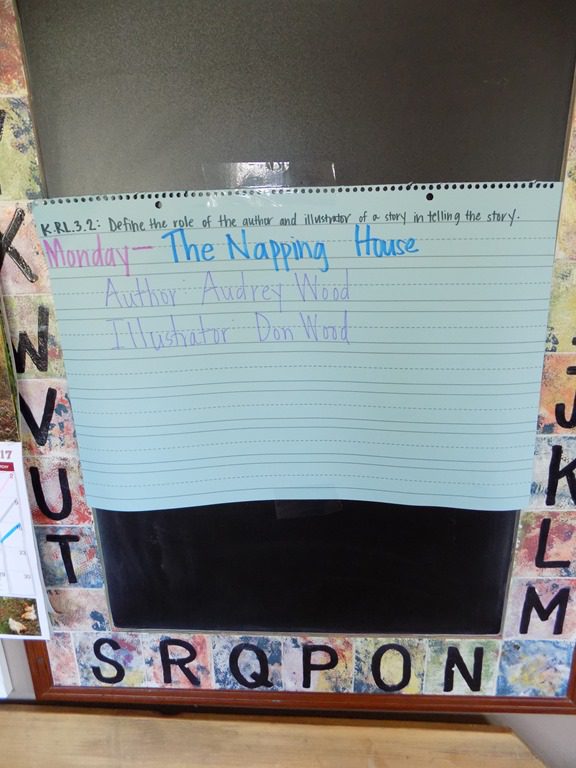 K.RL.3.2: Define the role of the author and illustrator of a story in telling the story.
Monday— The Napping House
Author: Audrey Wood
Illustrator: Don Wood
K
W
V
U
T
S R Q P O N
J
K
L
M
17